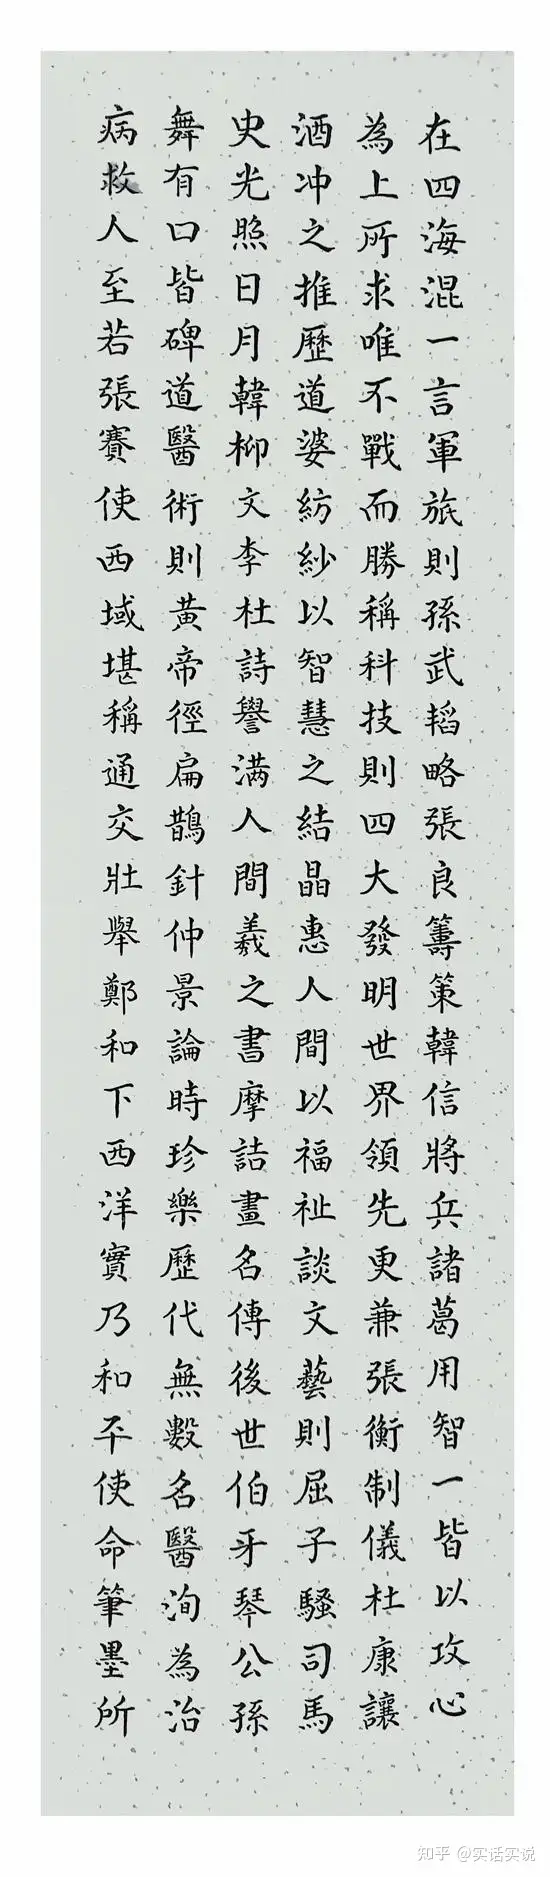 在四海混一言軍旅則孫武韜略張良籌策韓信將兵諸葛用智一皆以攻心
為上所求唯不戰而勝稱科技則四大發明世界領先更兼張衡制儀杜康讓
酒冲之推歷道婆紡紗以智慧之結晶惠人間以福祉談文藝則屈子騷司馬
史光照日月韓柳文李杜詩譽满人間羲之書摩詰畫名傳後世伯牙琴公孫
舞有口皆碑道醫術則黃帝徑扁鵲針仲景論時珍樂歷代無數名醫洵為治
病救人至若張賽使西域堪稱通交壯舉鄭和下西洋實乃和平使命筆墨所
知乎 @实话实说